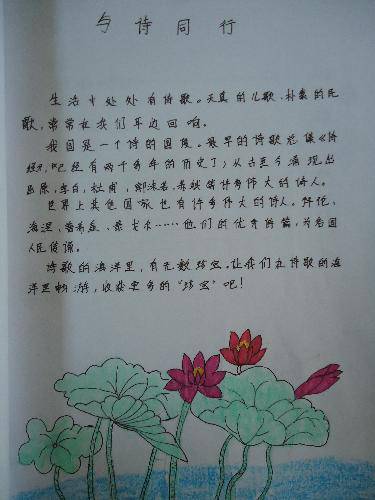 与诗同行
生活中处处有诗歌。天真的儿歌、朴素的民
歌，常常在我们耳边回响。
我国是一个诗的国度。最早的诗歌总集《诗
经》，已经有两千多年的历史了，从古至今涌现出
屈原、李白、杜甫、郭沫若、等许多伟大的诗人。
世界上其他国家也有许多伟大的诗人。拜伦、
海涅、普希金、泰戈尔……他们的优秀诗篇，为各国
人民传诵。
诗歌的海洋里，有无数珍宝。让我们在诗歌的海
洋里畅游，收获更多的“珍宝”吧！